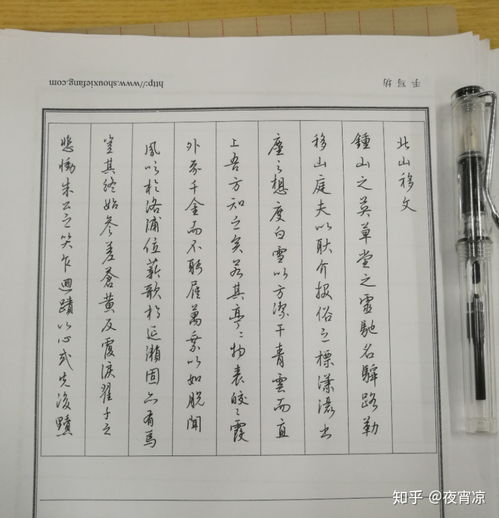 手写坊
http://www.shouxiefang.com
北山移文
鍾山之英草堂之靈馳名驛路勒
移山庭夫以耿介拔俗之標瀟灑出
塵之想度白雪以方潔干青雲而直
上吾方知之矣若其亭〻物表皎〻霞
外芥千金而不眄屣萬乘以如脫聞
鳳吹於洛浦值薪歌於延瀨固亦有焉
豈其終始參差蒼黄反覆淚翟子之
悲慟朱公之哭乍迴蹟以心或先後黷
知乎 @夜宵凉